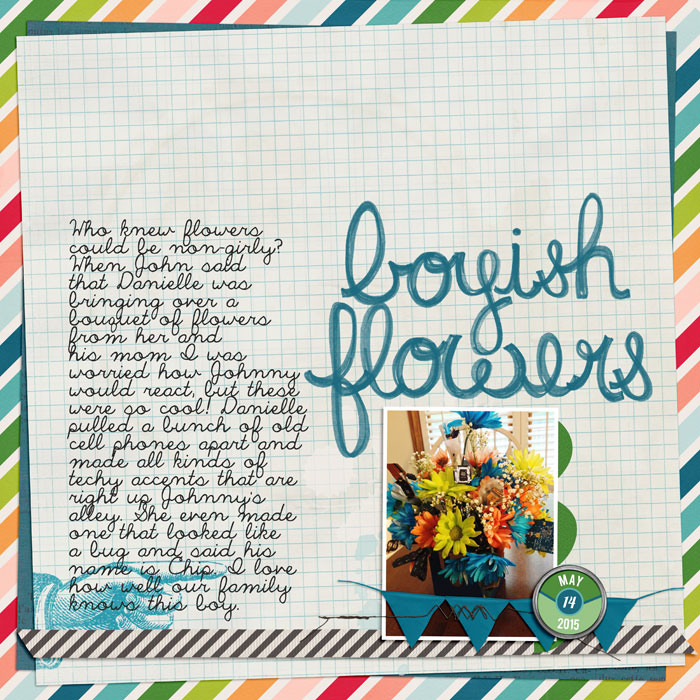 boyish
flowers
Who knew flowers
could be non-girly?
When John said
that Danielle was
bringing over a
bouquet of flowers
from her and
his mom I was
worried how Johnny
would react, but these
were so cool! Danielle
pulled a bunch of old
cell phones apart and
made all kinds of
techy accents that are
right up Johnny's
alley. She even made
one that looked like
a bug and said his
name is Chip. I love
how well our family
knows this boy.
MAY
14
2015